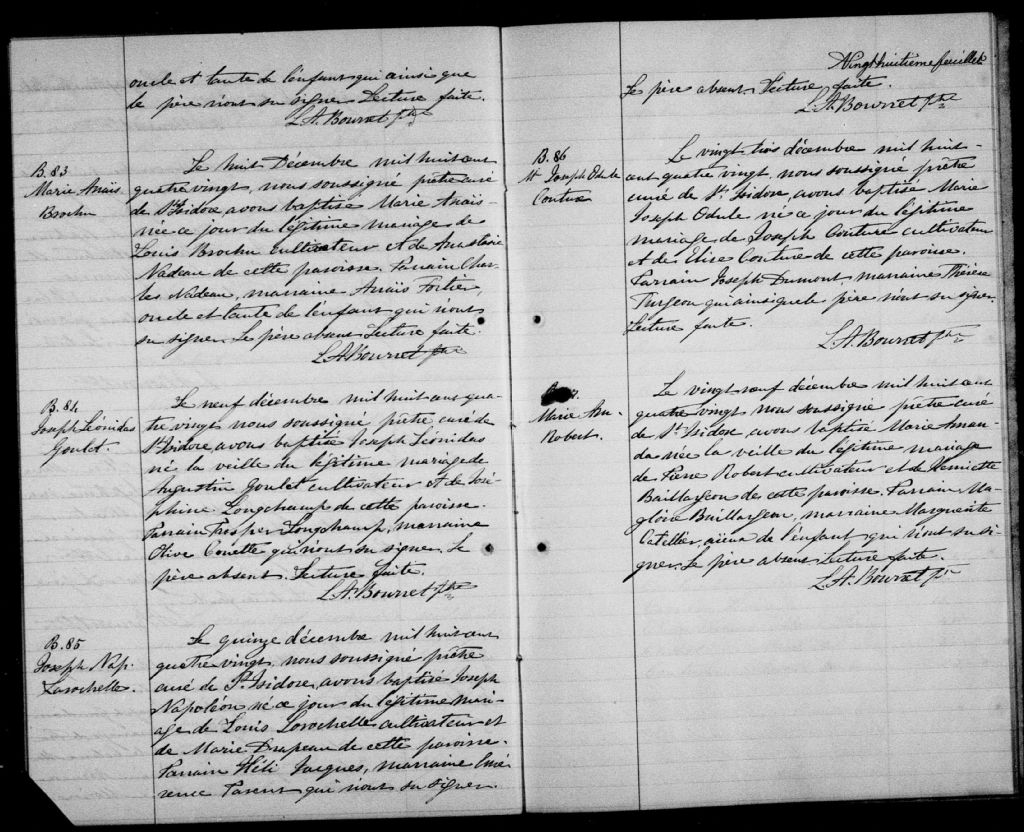 oncle et tante de l'enfant qui ainsi que
le père n'ont su signer. Lecture faite.
L. A. Bourret ptre
B. 83
Marie Anaïs
Brochu
Le huit Décembre mil huit cent
quatre vingt, nous soussigné prêtre curé
de St Isidore, avons baptisé Marie Anaïs
née ce jour du légitime mariage de
Louis Brochu cultivateur et de Anastasie
Nadeau de cette paroisse. Parrain Char-
les Nadeau, marraine Anaïs Fortier,
oncle et tante de l'enfant qui n'ont
su signer. Le père absent. Lecture faite.
L. A. Bourret ptre
B. 84
Joseph Léonidas
Goulet.
Le neuf décembre mil huit cent qua-
tre vingt nous soussigné, prêtre curé de
St Isidore, avons baptisé Joseph Léonidas
né la veille du légitime mariage de
Augustin Goulet cultivateur et de José-
phine Longchamp de cette paroisse.
Parrain Prosper Longchamp, marraine
Olive qui n'ont su signer. Le
père absent. Lecture faite.
L. A. Bourret ptre
B. 85
Joseph Nap.
Larochelle.
Le quinze décembre mil huit cent
quatre vingt nous soussigné prêtre
curé de St Isidore, avons baptisé Joseph
Napoléon né ce jour du légitime mari-
age de Louis Larochelle cultivateur et
de Marie Drapeau de cette paroisse.
Parrain Héli Jacques, marraine Émé-
rence Parent qui n'ont su signer.
Vingt huitième feuillet
Le père absent. Lecture faite.
L. A. Bourret ptre
B. 86
M. Joseph Odule
Couture
Le vingt trois décembre mil huit-
cent quatre vingt, nous soussigné prêtre
curé de St Isidore, avons baptisé Marie
Joseph Odule né ce jour du légitime
mariage de Joseph Couture cultivateur
et de Elise Couture de cette paroisse.
Parrain Joseph Dumont, marraine Thérèse
Turgeon qui ainsi que le père n'ont su signer.
Lecture faite.
L. A. Bourret ptre
Marie Am.
Robert.
Le vingt neuf décembre mil huit cent
quatre vingt nous soussigné prêtre curé
de St Isidore, avons baptisé Marie Aman-
da née la veille du légitime mariage
de Pierre Robert cultivateur et de Henriette
Baillargeon de cette paroisse. Parrain Ma-
gloire Baillargeon, marraine Marguerite
Catellier, aïeux de l'enfant qui n'ont su si-
gner. Le père absent. Lecture faite.
L. A. Bourret ptre